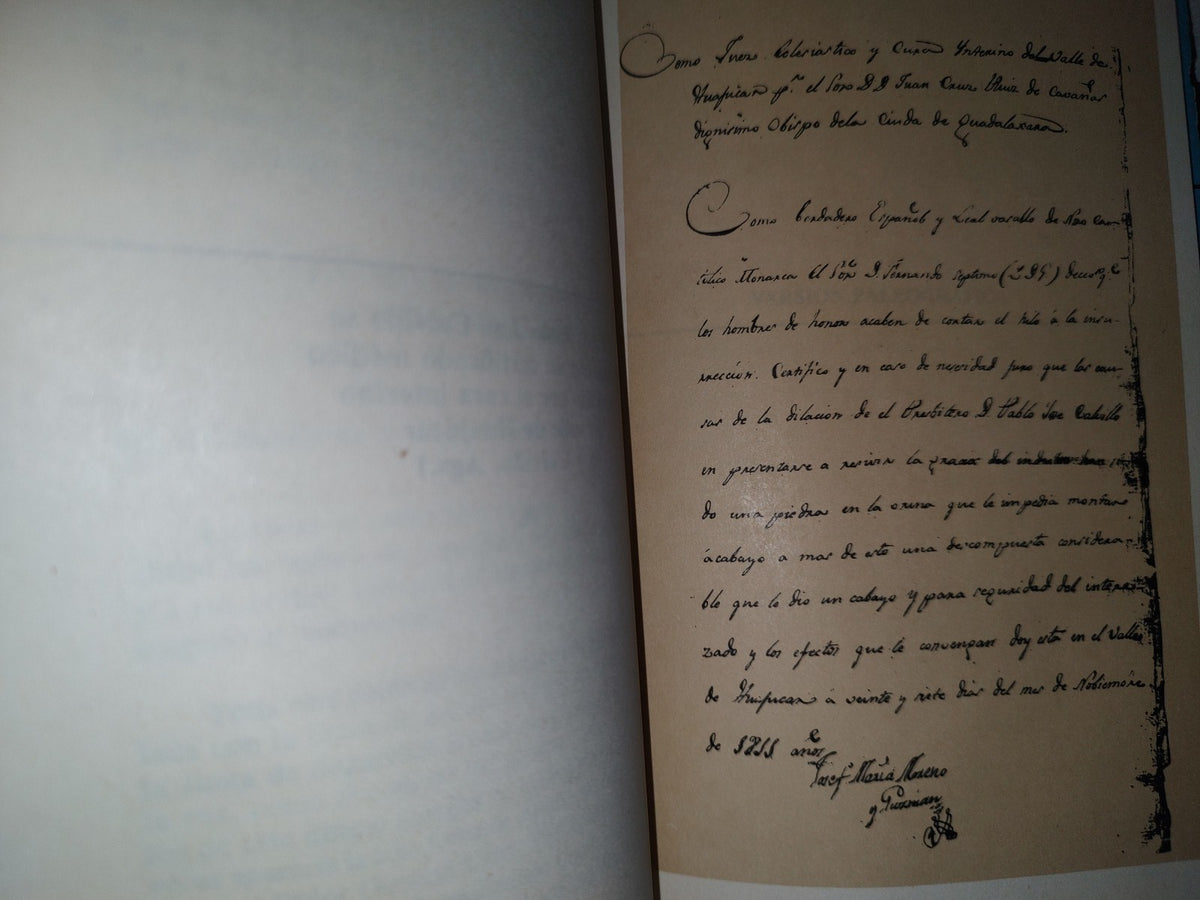 Como Juez Eclesiastico y Cura Ynterino del Valle de
Huapican pr. el Sor. D. D. Juan Cruz Ruiz de Cavañas
dignisimo Obispo dela Ciuda de Guadalaxara.
Como berdadero Español y Leal vasallo de Nro Cato-
tilico Monarca El Sor. D. Fernando septimo (Q D G) deceo qe.
los hombres de honor acaben de cortar el hilo á la insu-
rreccion. Certifico y en caso de necesidad juro que las cau-
sas de la dilacion de el Presbitero D. Pablo Jose Calvillo
en presentarse a resivir la gracia del indulto
do una piedra en la orina que le impedia montar
ácabayo a mas de esto una descompuesta considera-
ble que le dio un cabayo y para seguridad del intere-
zado y los efectos que le convengan doy esta en el Valle
de Huapican á veinte y siete dias del mes de Nobiembre
de 1811 años
Josef Maria Moreno
y Guzman